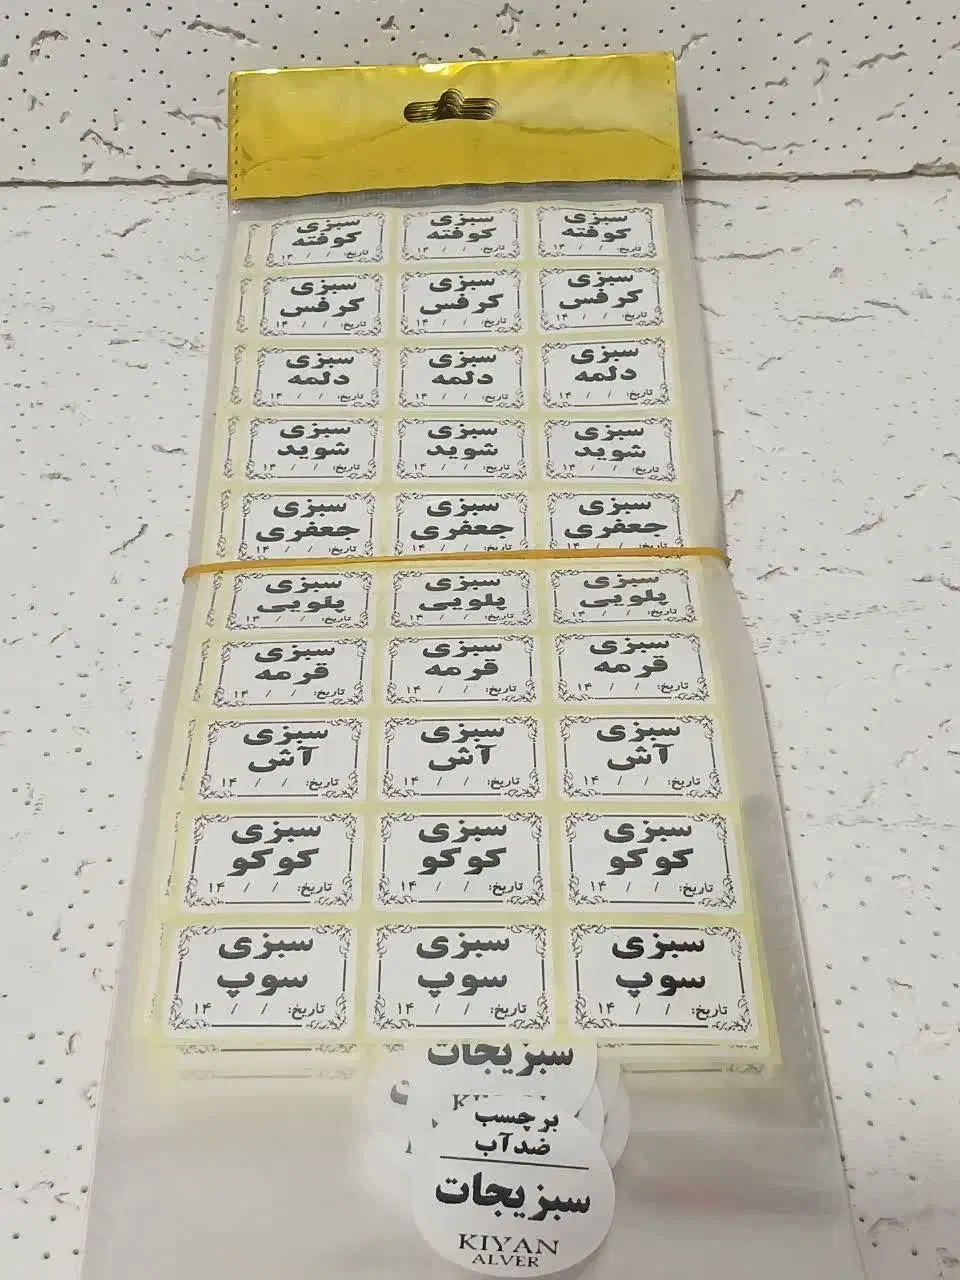 سبزی سبزی سبزی
کوفته کوفته کوفته
تاریخ: / / ۱۴ تاریخ: / / ۱۴ تاریخ: / / ۱۴
سبزی سبزی سبزی
کرفس کرفس کرفس
تاریخ: / / ۱۴ تاریخ: / / ۱۴ تاریخ: / / ۱۴
سبزی سبزی سبزی
دلمه دلمه دلمه
تاریخ: / / ۱۴ تاریخ: / / ۱۴ تاریخ: / / ۱۴
سبزی سبزی سبزی
شوید شوید شوید
تاریخ: / / ۱۴ تاریخ: / / ۱۴ تاریخ: / / ۱۴
سبزی سبزی سبزی
جعفری جعفری جعفری
تاریخ: / / ۱۴ تاریخ: / / ۱۴ تاریخ: / / ۱۴
سبزی سبزی سبزی
پلویی پلویی پلویی
تاریخ: / / ۱۴ تاریخ: / / ۱۴ تاریخ: / / ۱۴
سبزی سبزی سبزی
قرمه قرمه قرمه
تاریخ: / / ۱۴ تاریخ: / / ۱۴ تاریخ: / / ۱۴
سبزی سبزی سبزی
آش آش آش
تاریخ: / / ۱۴ تاریخ: / / ۱۴ تاریخ: / / ۱۴
سبزی سبزی سبزی
کوکو کوکو کوکو
تاریخ: / / ۱۴ تاریخ: / / ۱۴ تاریخ: / / ۱۴
سبزی سبزی سبزی
سوپ سوپ سوپ
تاریخ: / / ۱۴ تاریخ: / / ۱۴ تاریخ: / / ۱۴
سبزیجات
برچسب
ضدآب
سبزیجات
KIYAN
ALVER